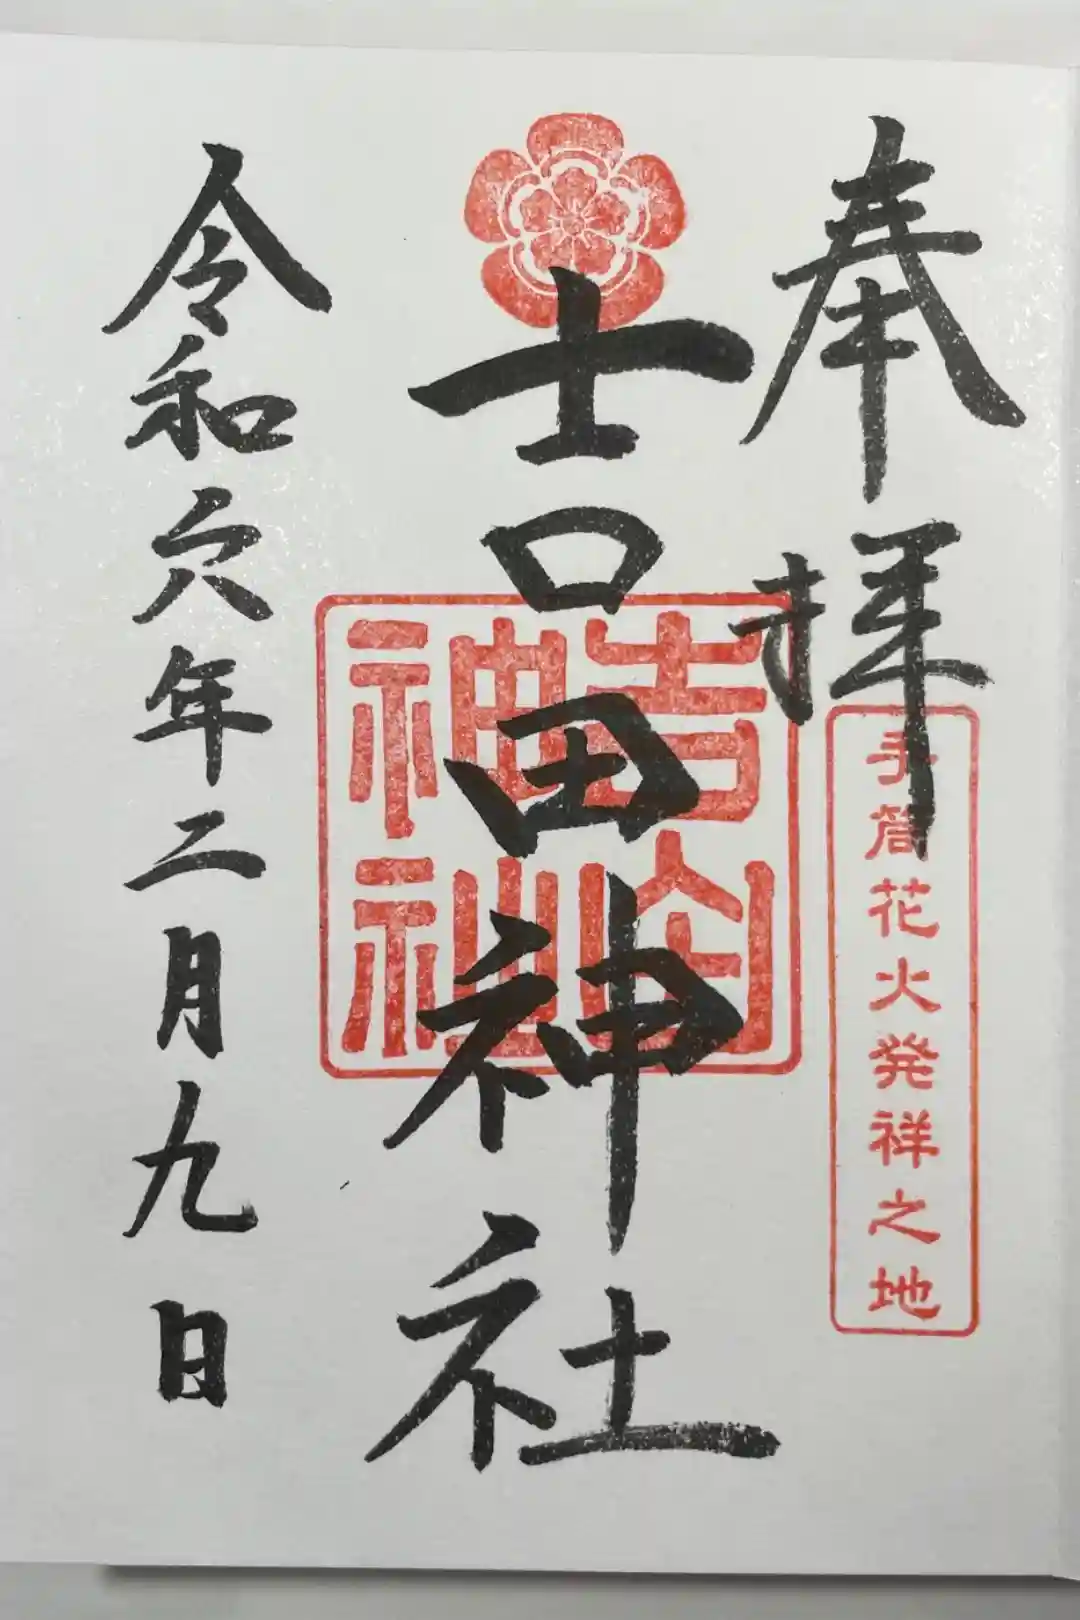 奉拝
手筒花火発祥之地
吉田神社
令和六年二月九日